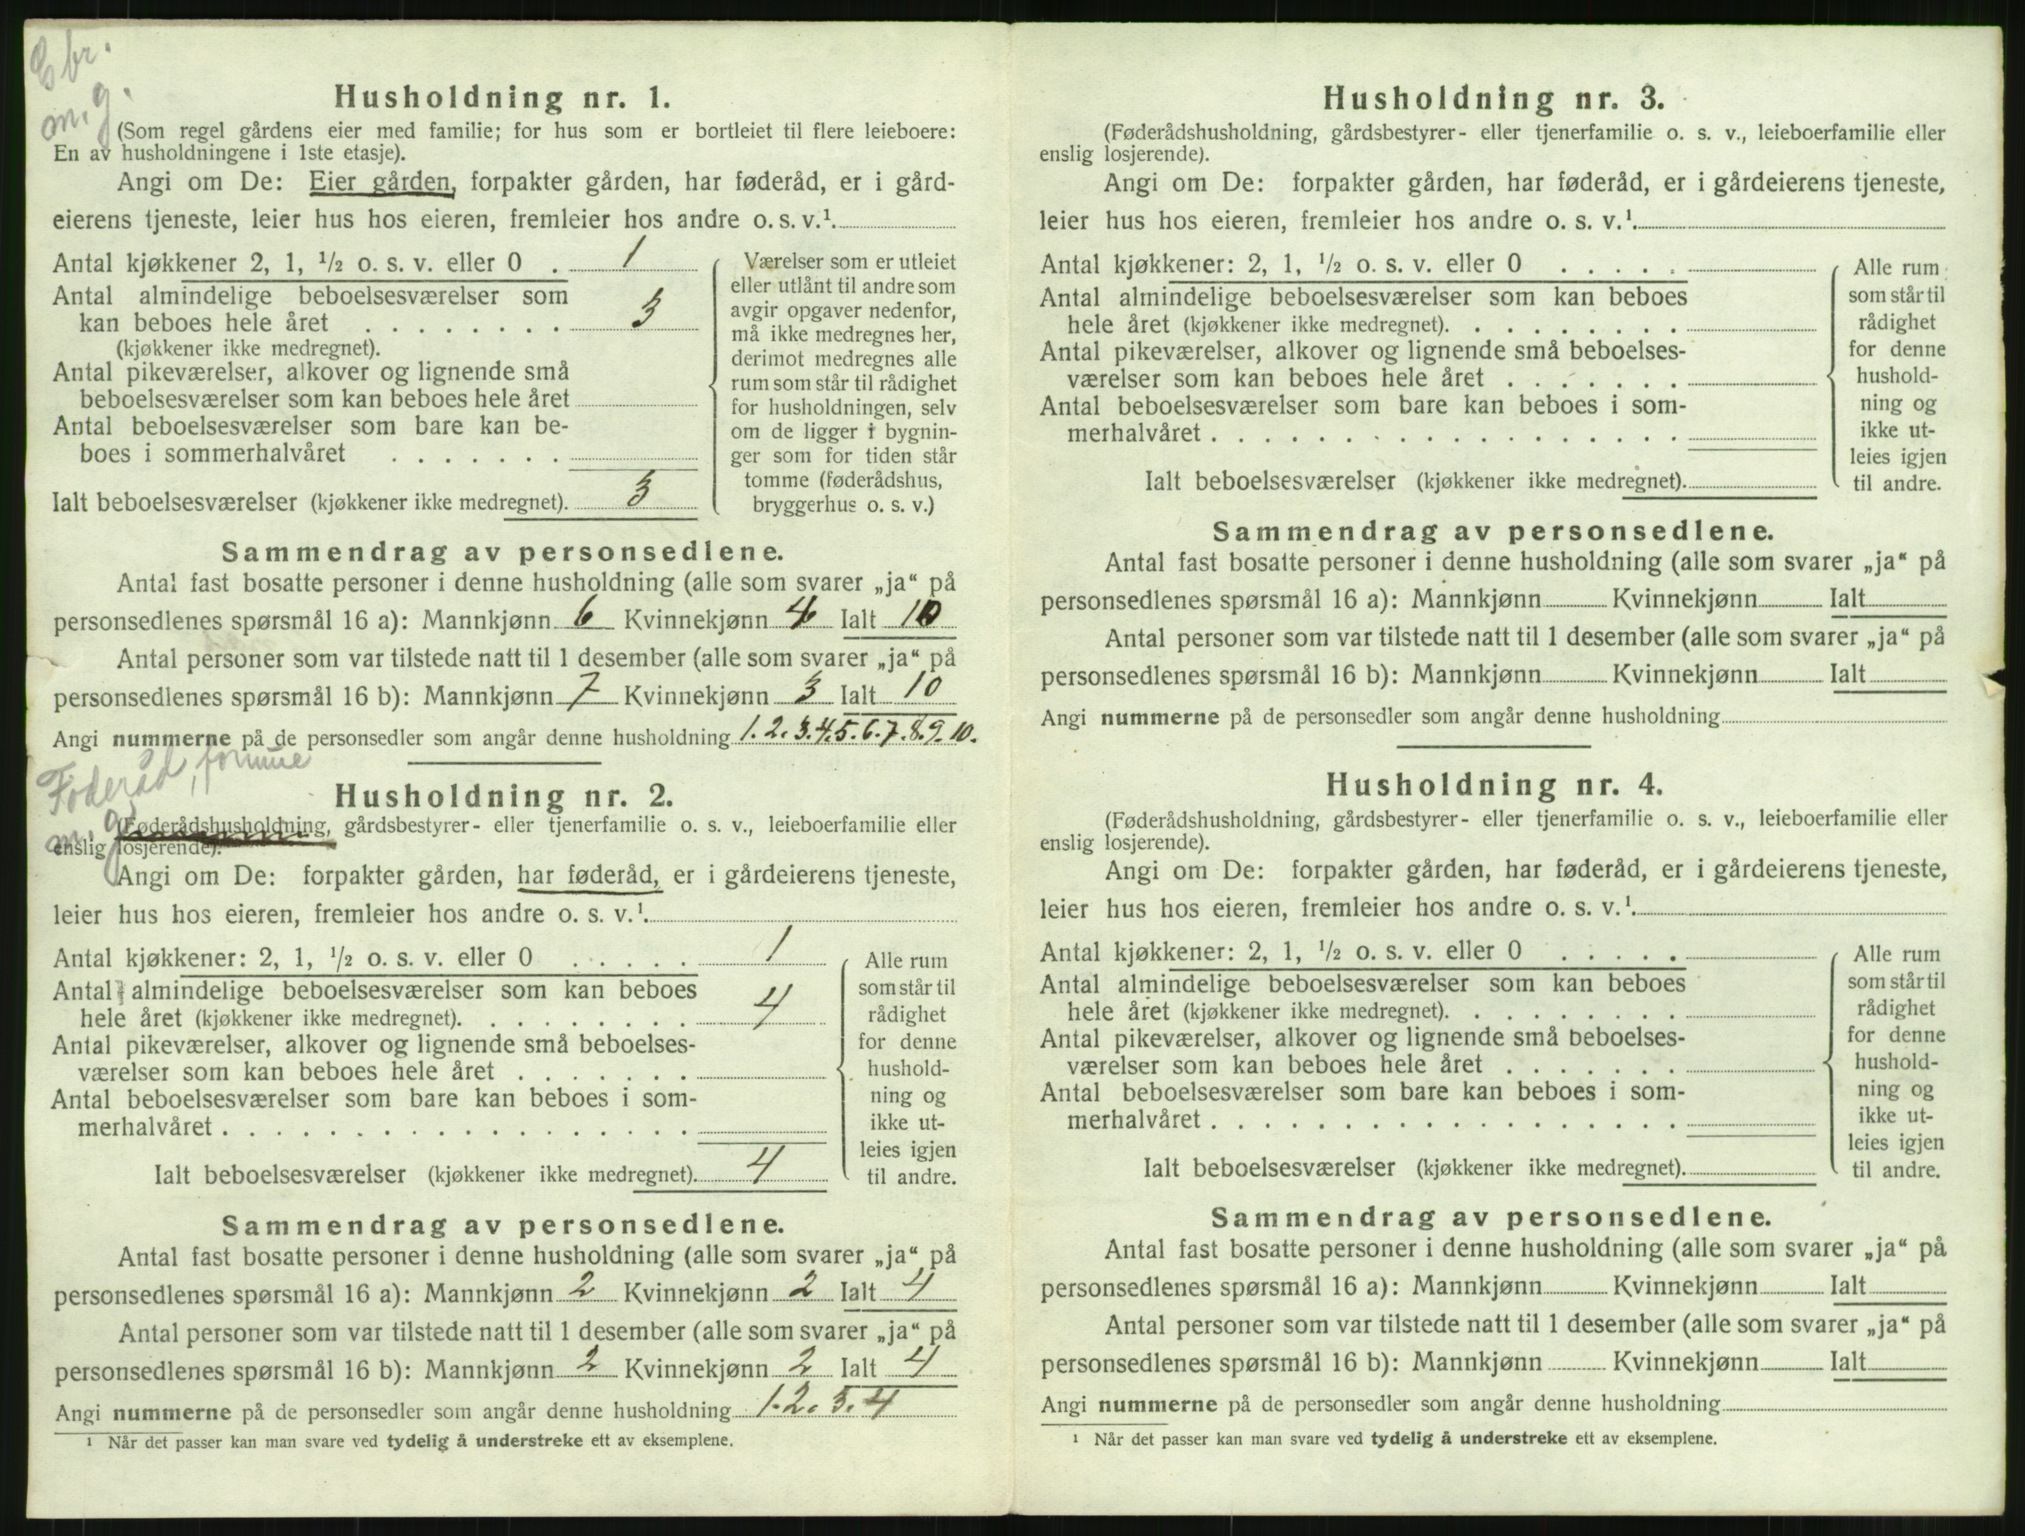 G br.
m. g.
Husholdning nr. 1.
(Som regel gårdens eier med familie; for hus som er bortleiet til flere leieboere:
En av husholdningene i 1ste etasje).
Angi om De: Eier gården, forpakter gården, har føderåd, er i gård-
eierens tjeneste, leier hus hos eieren, fremleier hos andre o. s. v.¹
Antal kjøkkener 2, 1, ½ o. s. v. eller 0 . 1
Antal almindelige beboelsesværelser som
kan beboes hele året . . . . . . . . 3
(kjøkkener ikke medregnet).
Antal pikeværelser, alkover og lignende små
beboelsesværelser som kan beboes hele året
Antal beboelsesværelser som bare kan be-
boes i sommerhalvåret . . . . . . .
Ialt beboelsesværelser (kjøkkener ikke medregnet). 3
Værelser som er utleiet
eller utlånt til andre som
avgir opgaver nedenfor,
må ikke medregnes her,
derimot medregnes alle
rum som står til rådighet
for husholdningen, selv
om de ligger i bygnin-
ger som for tiden står
tomme (føderådshus,
bryggerhus o. s. v.)
Sammendrag av personsedlene.
Antal fast bosatte personer i denne husholdning (alle som svarer „ja“ på
personsedlenes spørsmål 16 a): Mannkjønn 6 Kvinnekjønn 4 Ialt 10
Antal personer som var tilstede natt til 1 desember (alle som svarer „ja“ på
personsedlenes spørsmål 16 b): Mannkjønn 7 Kvinnekjønn 3 Ialt 10
Angi nummerne på de personsedler som angår denne husholdning 1. 2. 3. 4. 5. 6. 7. 8. 9. 10.
Føderåd, formue
m. g.
Husholdning nr. 2.
(Føderådshusholdning, gårdsbestyrer- eller tjenerfamilie o. s. v., leieboerfamilie eller
enslig losjerende).
Angi om De: forpakter gården, har føderåd, er i gårdeierens tjeneste,
leier hus hos eieren, fremleier hos andre o. s. v.¹
Antal kjøkkener: 2, 1, ½ o. s. v. eller 0 . . . . . 1
Antal almindelige beboelsesværelser som kan beboes
hele året (kjøkkener ikke medregnet). . . . . . . . . 4
Antal pikeværelser, alkover og lignende små beboelses-
værelser som kan beboes hele året . . . . . . .
Antal beboelsesværelser som bare kan beboes i som-
merhalvåret . . . . . . . . . . . . . . . . . .
Ialt beboelsesværelser (kjøkkener ikke medregnet). 4
Alle rum
som står til
rådighet
for denne
hushold-
ning og
ikke ut-
leies igjen
til andre.
Sammendrag av personsedlene.
Antal fast bosatte personer i denne husholdning (alle som svarer „ja“ på
personsedlenes spørsmål 16 a): Mannkjønn 2 Kvinnekjønn 2 Ialt 4
Antal personer som var tilstede natt til 1 desember (alle som svarer „ja“ på
personsedlenes spørsmål 16 b): Mannkjønn 2 Kvinnekjønn 2 Ialt 4
Angi nummerne på de personsedler som angår denne husholdning 1. 2. 3. 4
¹ Når det passer kan man svare ved tydelig å understreke ett av eksemplene.
Husholdning nr. 3.
(Føderådshusholdning, gårdsbestyrer- eller tjenerfamilie o. s. v., leieboerfamilie eller
enslig losjerende).
Angi om De: forpakter gården, har føderåd, er i gårdeierens tjeneste,
leier hus hos eieren, fremleier hos andre o. s. v.¹
Antal kjøkkener: 2, 1, ½ o. s. v. eller 0 . . . . .
Antal almindelige beboelsesværelser som kan beboes
hele året (kjøkkener ikke medregnet). . . . . . . . .
Antal pikeværelser, alkover og lignende små beboelses-
værelser som kan beboes hele året . . . . . . .
Antal beboelsesværelser som bare kan beboes i som-
merhalvåret . . . . . . . . . . . . . . . . . .
Ialt beboelsesværelser (kjøkkener ikke medregnet).
Alle rum
som står til
rådighet
for denne
hushold-
ning og
ikke ut-
leies igjen
til andre.
Sammendrag av personsedlene.
Antal fast bosatte personer i denne husholdning (alle som svarer „ja“ på
personsedlenes spørsmål 16 a): Mannkjønn Kvinnekjønn Ialt
Antal personer som var tilstede natt til 1 desember (alle som svarer „ja“ på
personsedlenes spørsmål 16 b): Mannkjønn Kvinnekjønn Ialt
Angi nummerne på de personsedler som angår denne husholdning
Husholdning nr. 4.
(Føderådshusholdning, gårdsbestyrer- eller tjenerfamilie o. s. v., leieboerfamilie eller
enslig losjerende).
Angi om De: forpakter gården, har føderåd, er i gårdeierens tjeneste,
leier hus hos eieren, fremleier hos andre o. s. v.¹
Antal kjøkkener: 2, 1, ½ o. s. v. eller 0 . . . . .
Antal almindelige beboelsesværelser som kan beboes
hele året (kjøkkener ikke medregnet). . . . . . . . .
Antal pikeværelser, alkover og lignende små beboelses-
værelser som kan beboes hele året . . . . . . .
Antal beboelsesværelser som bare kan beboes i som-
merhalvåret . . . . . . . . . . . . . . . . . .
Ialt beboelsesværelser (kjøkkener ikke medregnet).
Alle rum
som står til
rådighet
for denne
hushold-
ning og
ikke ut-
leies igjen
til andre.
Sammendrag av personsedlene.
Antal fast bosatte personer i denne husholdning (alle som svarer „ja“ på
personsedlenes spørsmål 16 a): Mannkjønn Kvinnekjønn Ialt
Antal personer som var tilstede natt til 1 desember (alle som svarer „ja“ på
personsedlenes spørsmål 16 b): Mannkjønn Kvinnekjønn Ialt
Angi nummerne på de personsedler som angår denne husholdning
¹ Når det passer kan man svare ved tydelig å understreke ett av eksemplene.